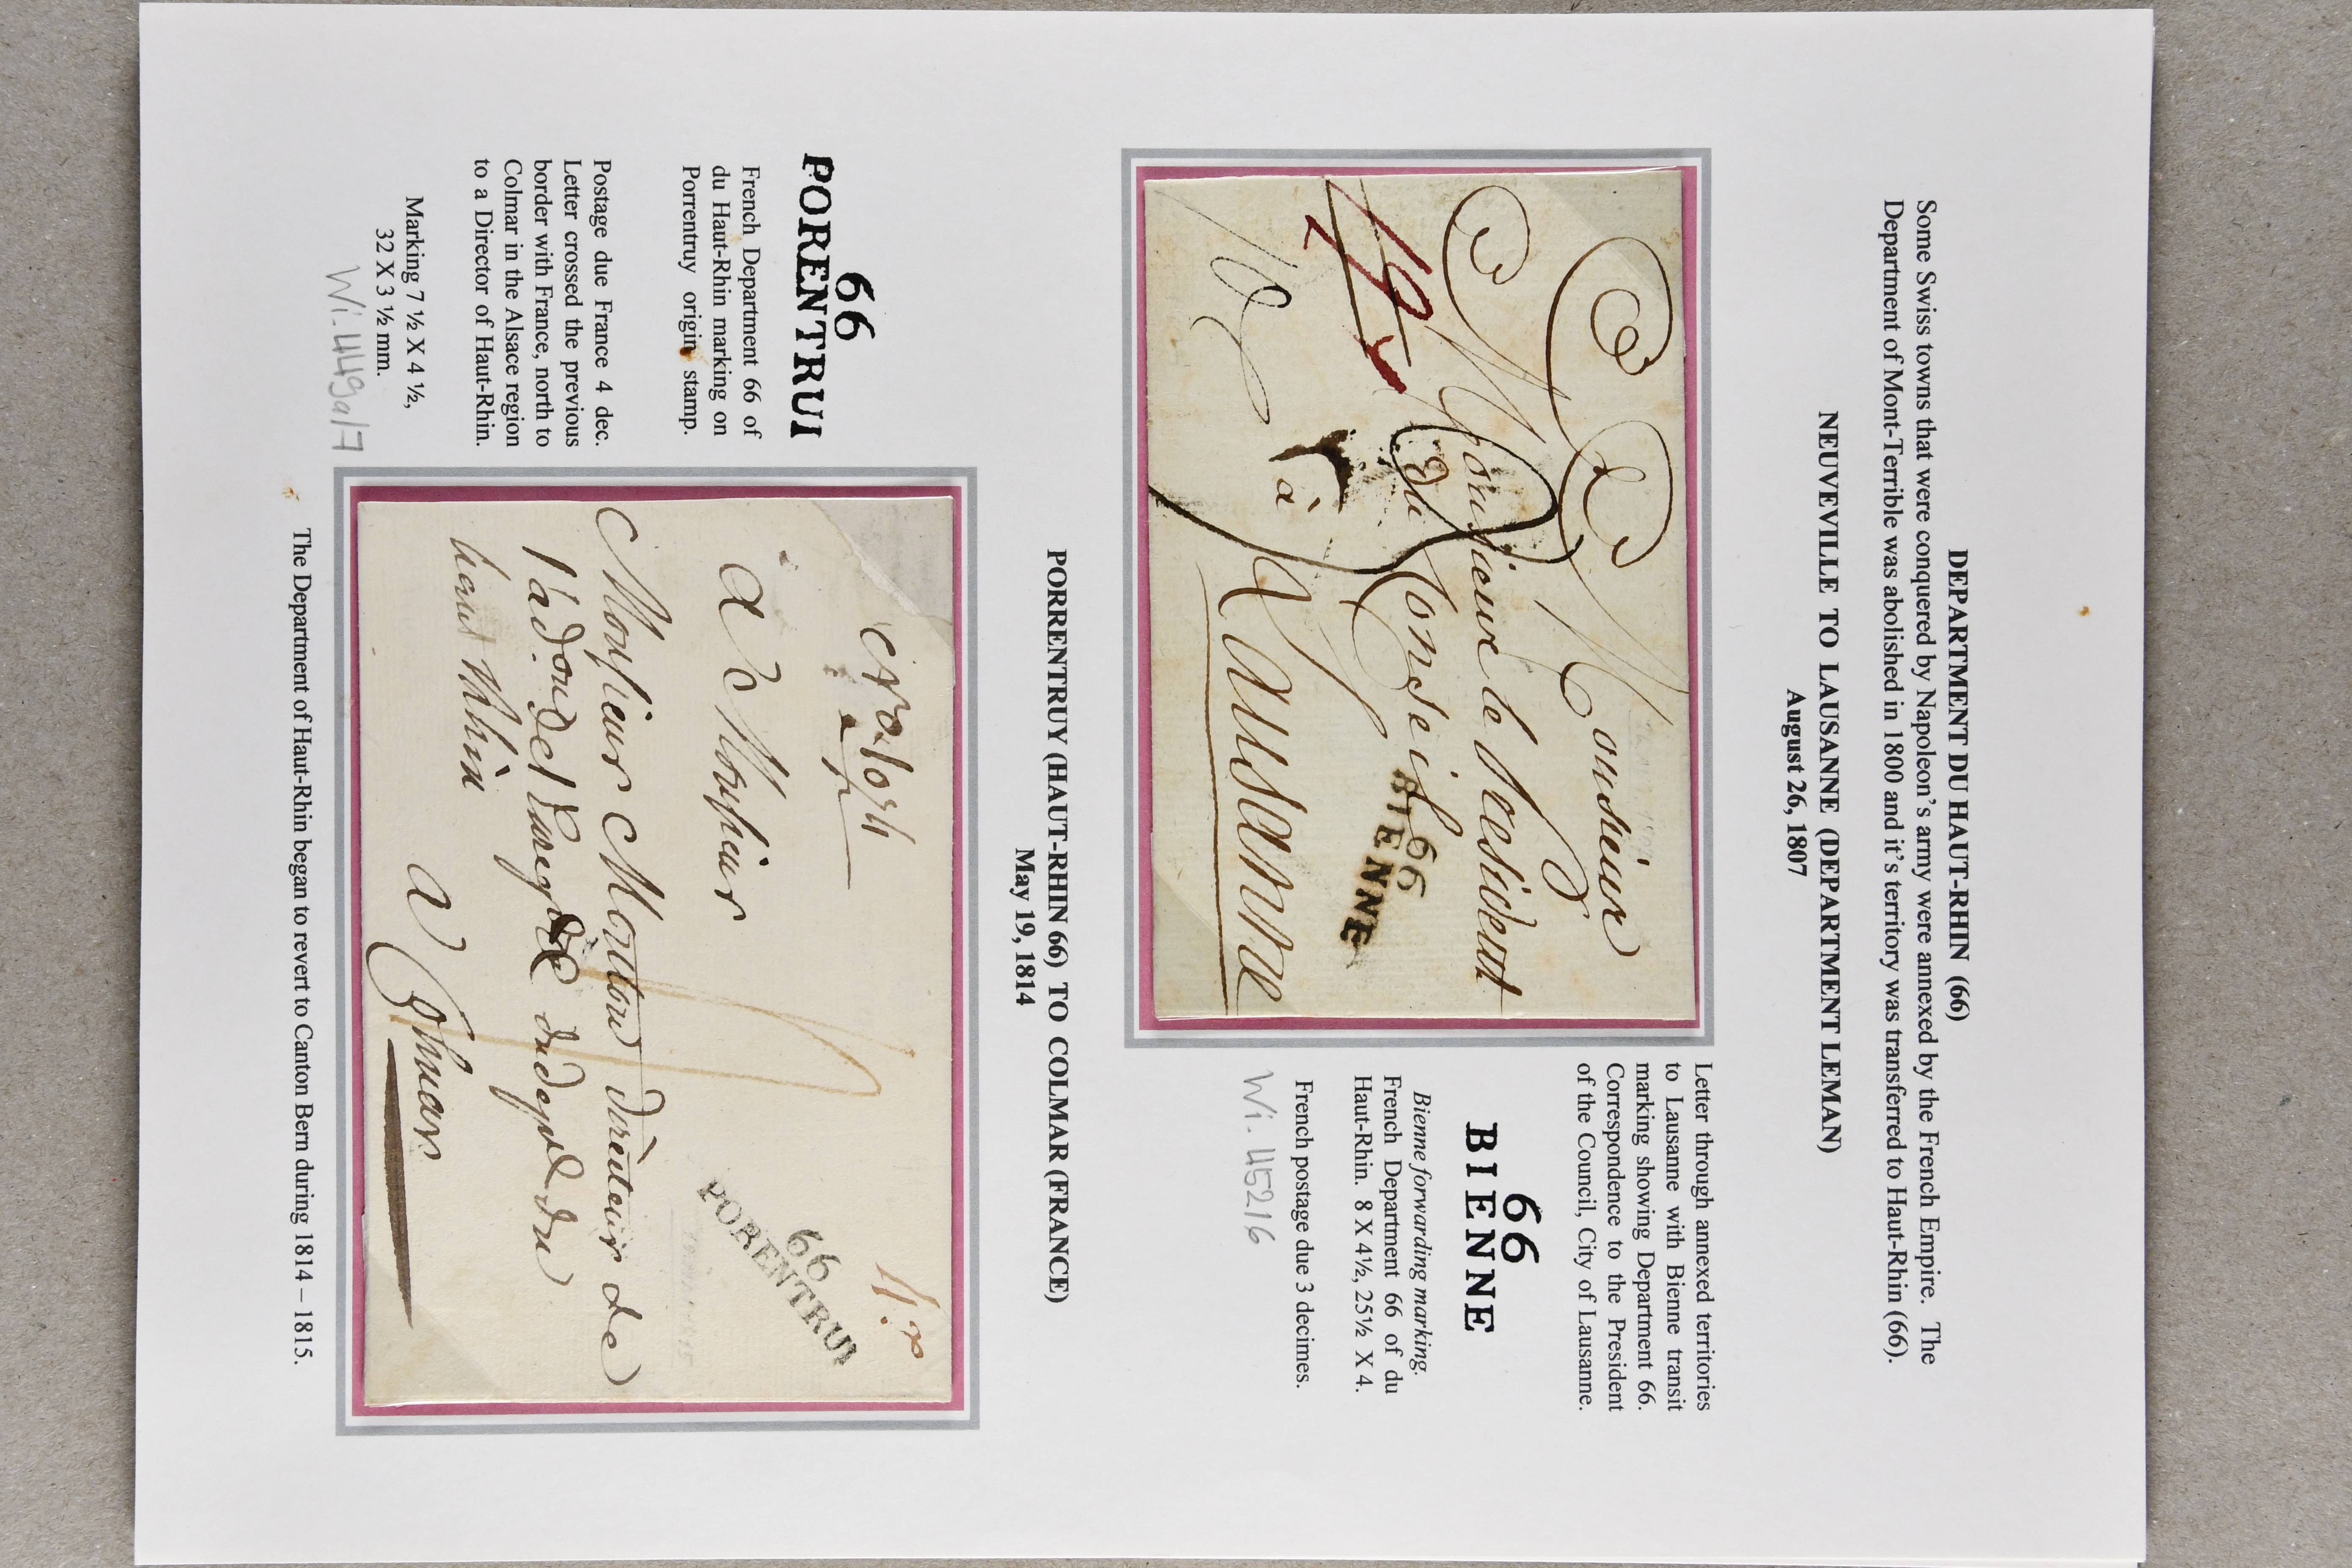 DEPARTMENT DU HAUT-RHIN (66)
Some Swiss towns that were conquered by Napoleon's army were annexed by the French Empire. The
Department of Mont-Terrible was abolished in 1800 and it's territory was transferred to Haut-Rhin (66).
NEUVEVILLE TO LAUSANNE (DEPARTMENT LEMAN)
August 26, 1807
Monsieur
Monsieur le President
du Conseil
à Lausanne
66
BIENNE
Letter through annexed territories
to Lausanne with Bienne transit
marking showing Department 66.
Correspondence to the President
of the Council, City of Lausanne.
66
BIENNE
Bienne forwarding marking.
French Department 66 of du
Haut-Rhin. 8 X 4½, 25½ X 4.
French postage due 3 decimes.
Wi. 45216
PORRENTRUY (HAUT-RHIN 66) TO COLMAR (FRANCE)
May 19, 1814
66
PORENTRUI
French Department 66 of
du Haut-Rhin marking on
Porrentruy origin stamp.
Postage due France 4 dec.
Letter crossed the previous
border with France, north to
Colmar in the Alsace region
to a Director of Haut-Rhin.
Marking 7 ½ X 4 ½,
32 X 3 ½ mm.
Wi. 449a/7
A Monsieur
Monsieur directeur de
du
haut Rhin
a Colmar
66
PORENTRUI
The Department of Haut-Rhin began to revert to Canton Bern during 1814 – 1815.